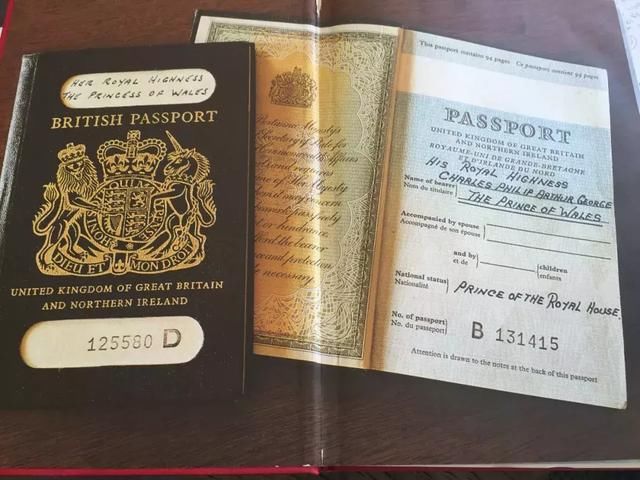 HER ROYAL HIGHNESS
THE PRINCESS OF WALES
BRITISH PASSPORT
DIEU ET MON DROIT
UNITED KINGDOM OF GREAT BRITAIN
AND NORTHERN IRELAND
125580 D
Majesty's
Secretary of State for
Commonwealth Affairs
requires
of Her Majesty
it may
passport
or hindrance
the bearer
and protection
necessary.
This passport contains 94 pages Ce passeport contient 94 pages
PASSPORT
UNITED KINGDOM OF GREAT BRITAIN
AND NORTHERN IRELAND
ROYAUME-UNI DE GRANDE-BRETAGNE
ET D'IRLANDE DU NORD
HIS ROYAL HIGHNESS
Name of bearer CHARLES PHILIP ARTHUR GEORGE
Nom du titulaire THE PRINCE OF WALES
Accompanied by spouse
Accompagné de son épouse
and by children
et de enfants
National status PRINCE OF THE ROYAL HOUSE.
Nationalité
No. of passport B 131415
No. du passeport
Attention is drawn to the notes at the back of this passport